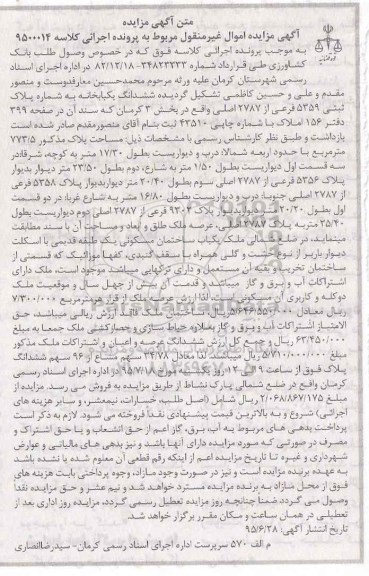 متن آگهی مزایده
آگهی مزایده اموال غیرمنقول مربوط به پرونده اجرائی کلاسه ۹۵۰۰۰۱۴
به موجب پرونده اجرائی کلاسه فوق که در خصوص وصول طلب بانک
کشاورزی طی قرارداد شماره ۳۴۸۲۳۲۳۳-۸۲/۱۲/۱۸ در اداره اجرای اسناد
رسمی شهرستان کرمان علیه ورثه مرحوم محمدحسین معارفدوست و منصور
مقدم و علی و حسین کاظمی تشکیل گردیده ششدانگ یکبابخانه به شماره پلاک
ثبتی ۵۳۵۹ فرعی از ۲۷۸۷ اصلی واقع در بخش ۳ کرمان که سند آن در صفحه ۳۹۹
دفتر ۱۵۶ املاک با شماره چاپی ۴۳۵۱۰ ثبت بنام آقای منصورمقدم صادر شده است
بازداشت و طبق نظر کارشناس رسمی با مشخصات ذیل: مساحت پلاک مذکور ۷۷۳/۵
مترمربع با حدود اربعه شمالا: درب و دیواریست بطول ۱۷/۳۰ متر به کوچه، شرقا:در
سه قسمت اول دیواریست بطول ۱/۵۰ متر به شارع، دوم بطول ۲۳/۵۰ متر دیوار بدیوار
پلاک ۵۳۵۶ فرعی از ۲۷۸۷ اصلی سوم بطول ۲۰/۴۰ متر دیواربدیوار پلاک ۵۳۵۸ فرعی
از ۲۷۸۷ اصلی جنوبا: درب و دیواریست بطول ۱۶/۸۰ متر به شارع غربا: در دو قسمت
اول بطول ۲۰/۲۰ متر دیواربدیوار پلاک ۹۲۰۴ فرعی از ۲۷۸۷ اصلی دوم دیواریست بطول
۲۵/۴۰ متر به پلاک ۲۷۸۷ اصلی، عرصه ملک طلق و ابعاد و مساحت آن با سند مطابقت
مینماید، در ضلع شمالی ملک یکباب ساختمان مسکونی یک طبقه قدیمی با اسکلت
دیوار باربر از نوع خشت و گلی همراه با سقف گنبدی، کفها موزائیک که قسمتی از
ساختمان تخریب و بقیه آن مستعمل و دارای ترکهایی میباشد موجود است، ملک دارای
اشتراکات آب و برق و گاز میباشد و قدمت آن بیش از چهل سال و موقعیت ملک
دوکله و کاربری آن مسکونی است، لذا ارزش عرصه ملک از قرار هر مترمربع ۷/۳۰۰/۰۰۰
ریال معادل ۵/۶۴۶/۵۵۰/۰۰۰ ریال فاقد ارزش ریالی میباشد، حق
الامتیاز اشتراکات آب و برق و گاز بعلاوه حیاط سازی و حصارکشی ملک جمعا به مبلغ
۶۳/۴۵۰/۰۰۰ ریال و جمع کل ارزش ششدانگ عرصه و اعیان و اشتراکات ملک مذکور
مبلغ ۵/۷۱۰/۰۰۰/۰۰۰ ریال میباشد، لذا معادل ۳۴/۷۸ سهم مشاع از ۹۶ سهم ششدانگ
پلاک فوق از ساعت ۹ الی ۱۲ روز یکشنبه مورخ ۹۵/۷/۱۸ در اداره اجرای اسناد رسمی
کرمان واقع در ضلع شمالی پارک نشاط از طریق مزایده به فروش می رسد. مزایده از
مبلغ ۲/۰۶۸/۸۶۷/۱۷۵ ریال شامل (اصل طلب، خسارات، نیمعشر، و سایر هزینه های
اجرائی) شروع و به بالاترین قیمت پیشنهادی نقدا فروخته می شود. لازم به ذکر است
پرداخت بدهی های مربوط به آب، برق، گاز اعم از حق انشعاب و یا حق اشتراک و
مصرف در صورتی که مورد مزایده دارای آنها باشد و نیز بدهی های مالیاتی و عوارض
شهرداری و غیره تا تاریخ مزایده اعم از اینکه رقم قطعی آن معلوم شده یا نشده باشد
به عهده برنده مزایده است و نیز در صورت وجود مازاد، وجوه پرداختی بابت هزینه های
فوق از محل مازاد به برنده مزایده مسترد خواهد شد و نیم عشر و حق مزایده نقدا
وصول می گردد ضمنا چنانچه روز مزایده تعطیل رسمی گردد، مزایده روز اداری بعد از
تعطیلی در همان ساعت و مکان مقرر برگزار خواهد شد.
تاریخ انتشار آگهی: ۹۵/۶/۲۸
م الف ۵۷۰ سرپرست اداره اجرای اسناد رسمی کرمان - سیدرضاانصاری